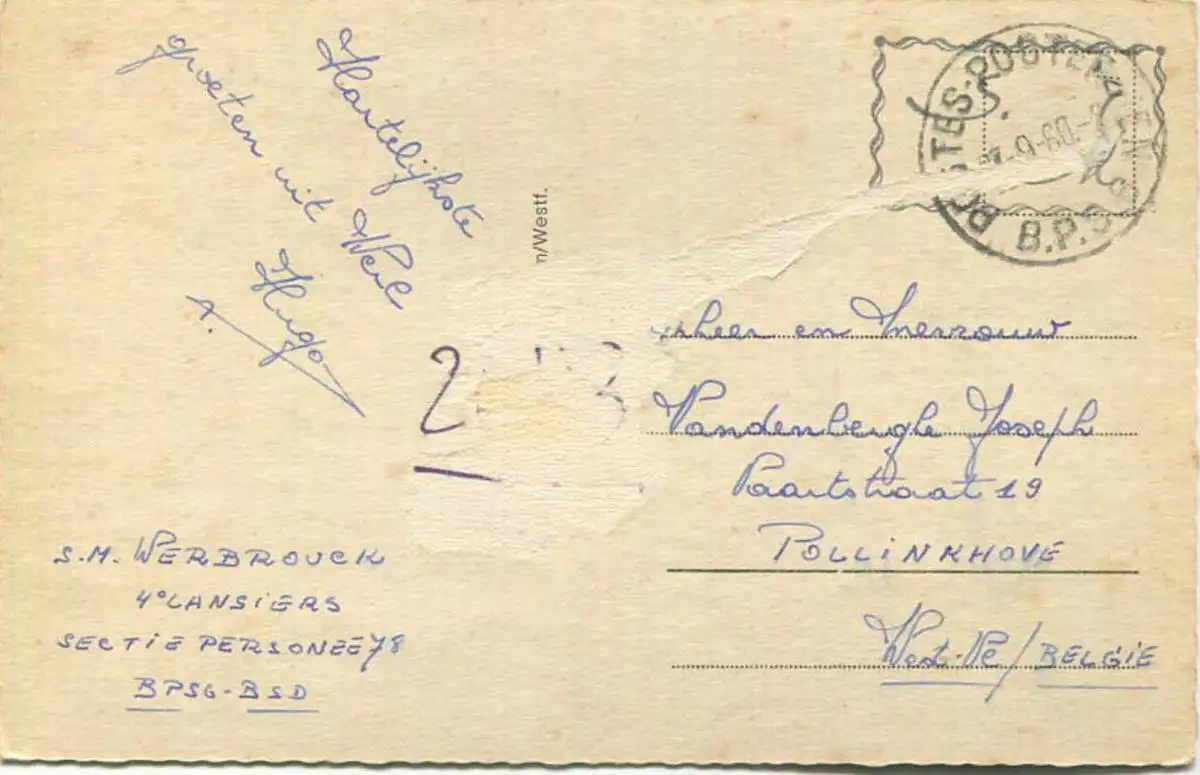 Hartelijkste
groeten uit Werl
Hugo
A.
n/Westf.
2
POSTES-POSTERIJEN
-9-60.-
B.P.S
heer en Mevrouw
Vandenberghe Joseph
Paartstraat 19
POLLINKHOVE
West-Vl/BELGIE
S.M. WERBROUCK
4° LANSIERS
SECTIE PERSONEEL
BPS6-BSD